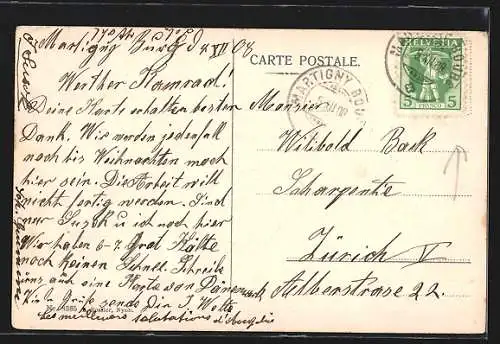 Martigny Burg d. 4 XII 08
Werther Kamrad!
Deine Karte erhalten besten
Dank. Wir werden jedenfall
noch bis Weihnachten noch
hier sein. Die Arbeit will
nicht fertig werden. Sind
nur u ich noch hier
Wir haben 6-7 Grad Kälte
noch keinen Schnee. Schreibe
uns auch eine Karte von
Viele Grüße sendet Dir J.
les meilleures salutations
CARTE POSTALE.
MARTIGNY BOURG
HELVETIA
5 FRANCO 5
Monsier
Witibold Back
Scharpentie
Zürich V
Ahlberstrasse 22.